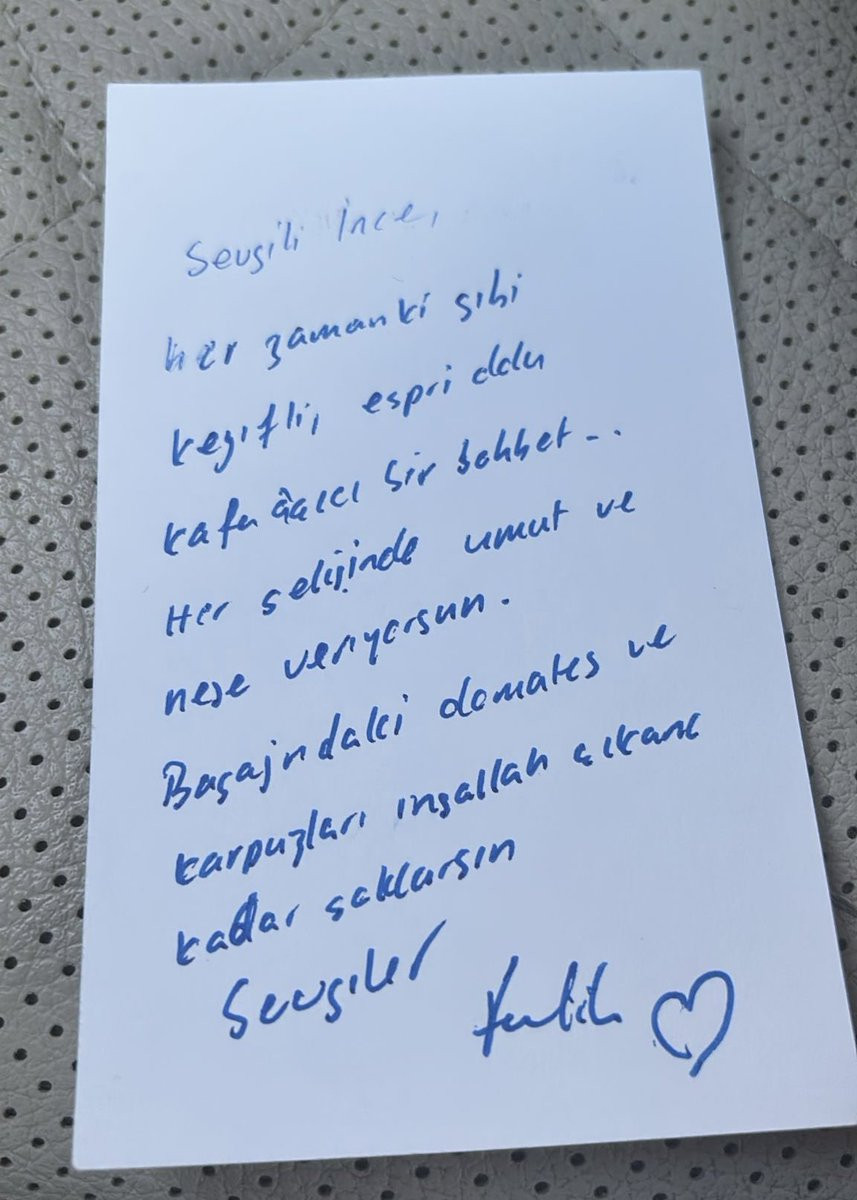 Sevgili İnce,
her zamanki gibi
keyifli, espri dolu
kafa açıcı bir sohbet...
Her gelişinde umut ve
neşe veriyorsun.
Bagajındaki domates ve
karpuzları inşallah çıkana
kadar saklarsın
Sevgiler
Fatih